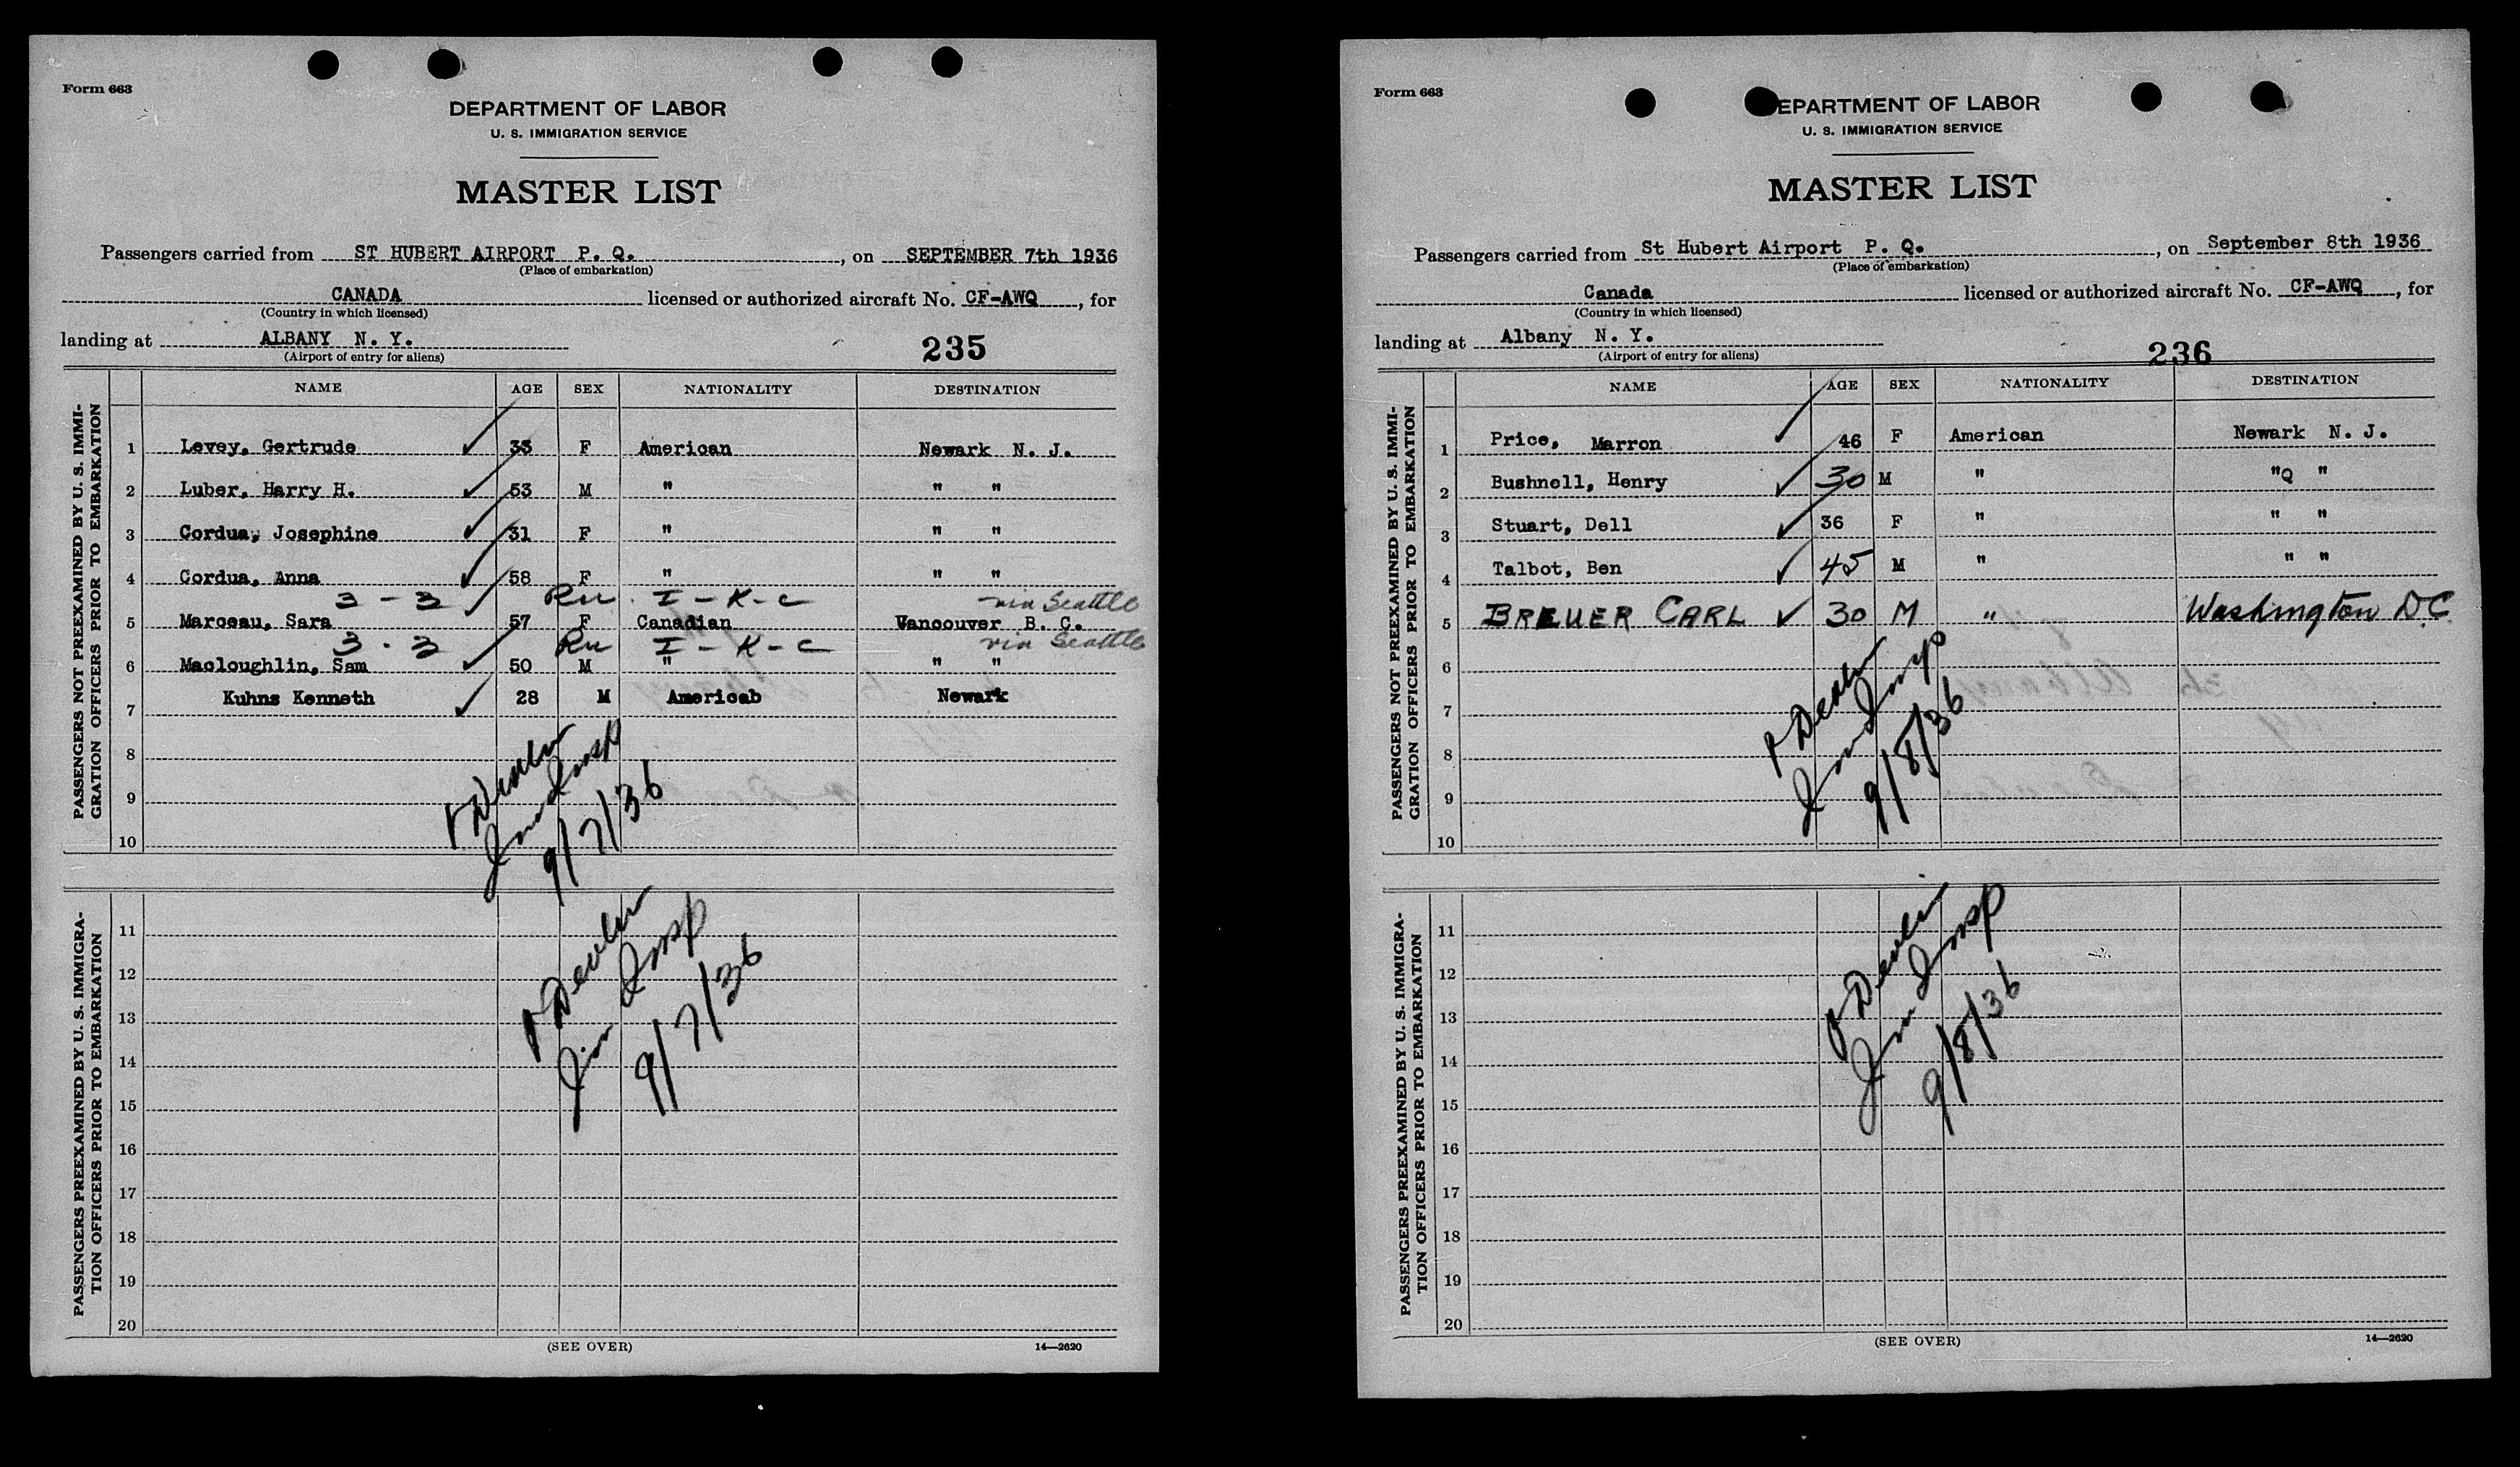 Form 663
DEPARTMENT OF LABOR
U. S. IMMIGRATION SERVICE
MASTER LIST
Passengers carried from ST HUBERT AIRPORT P. Q. , on SEPTEMBER 7th 1936
(Place of embarkation)
CANADA licensed or authorized aircraft No. CF-AWQ , for
(Country in which licensed)
landing at ALBANY N. Y.
(Airport of entry for aliens)
235
PASSENGERS NOT PREEXAMINED BY U. S. IMMI-
GRATION OFFICERS PRIOR TO EMBARKATION
NAME AGE SEX NATIONALITY DESTINATION
1 Levey, Gertrude ✓ 33 F American Newark N. J.
2 Luber, Harry H. ✓ 53 M " " "
3 Cordua, Josephine ✓ 31 F " " "
4 Cordua, Anna ✓ 58 F " " "
3 - 3 I - K - C via Seattle
5 Marceau, Sara ✓ 57 F Canadian Vancouver B. C.
3 - 3 I - K - C via Seattle
6 Macloughlin, Sam ✓ 50 M " " "
7 Kuhns Kenneth ✓ 28 M Americab Newark
8
9
10
Devlin
Imm Insp
9/7/36
PASSENGERS PREEXAMINED BY U. S. IMMIGRA-
TION OFFICERS PRIOR TO EMBARKATION
11
12
13
14
15
16
17
18
19
20
Devlin
Imm Insp
9/7/36
(SEE OVER)
14—2620
Form 663
DEPARTMENT OF LABOR
U. S. IMMIGRATION SERVICE
MASTER LIST
Passengers carried from St Hubert Airport P. Q. , on September 8th 1936
(Place of embarkation)
Canada licensed or authorized aircraft No. CF-AWQ , for
(Country in which licensed)
landing at Albany N. Y.
(Airport of entry for aliens)
236
PASSENGERS NOT PREEXAMINED BY U. S. IMMI-
GRATION OFFICERS PRIOR TO EMBARKATION
NAME AGE SEX NATIONALITY DESTINATION
1 Price, Marron ✓ 46 F American Newark N. J.
2 Bushnell, Henry ✓ 30 M " "Q "
3 Stuart, Dell ✓ 36 F " " "
4 Talbot, Ben ✓ 45 M " " "
5 BREUER CARL ✓ 30 M " Washington D.C.
6
7
8
9
10
Devlin
Imm Insp
9/8/36
PASSENGERS PREEXAMINED BY U. S. IMMIGRA-
TION OFFICERS PRIOR TO EMBARKATION
11
12
13
14
15
16
17
18
19
20
Devlin
Imm Insp
9/8/36
(SEE OVER)
14—2620